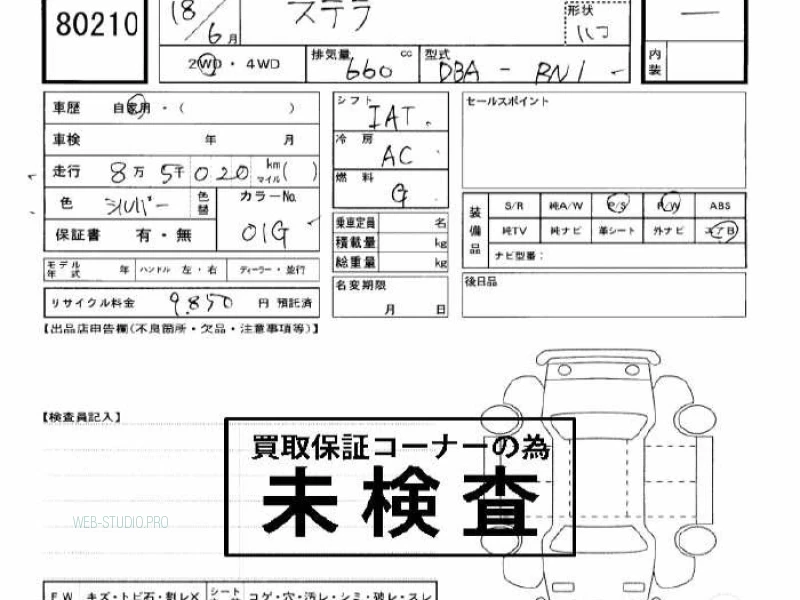 80210
18/6月
ステラ
形状
ハコ
内装
2WD・4WD
排気量 660 cc
型式 DBA - RN1
車歴 自家用・( )
車検 年 月
走行 8万 5千020 km マイル( )
色 シルバー 色替
カラーNo. 01G
保証書 有・無
シフト IAT
冷房 AC
燃料 G
乗車定員 名
積載量 kg
総重量 kg
名変期限 月 日
セールスポイント
装備品
S/R 純A/W P/S P/W ABS
純TV 純ナビ 革シート 外ナビ エアB
ナビ型番:
後日品
モデル年式 年 ハンドル 左・右 ディーラー・並行
リサイクル料金 9,850 円 預託済
【出品店申告欄(不良箇所・欠品・注意事項等)】
【検査員記入】
買取保証コーナーの為
未検査
WEB-STUDIO.PRO
FW キズ・トビ石・割レX シート コゲ・穴・汚レ・シミ・破レ・スレ